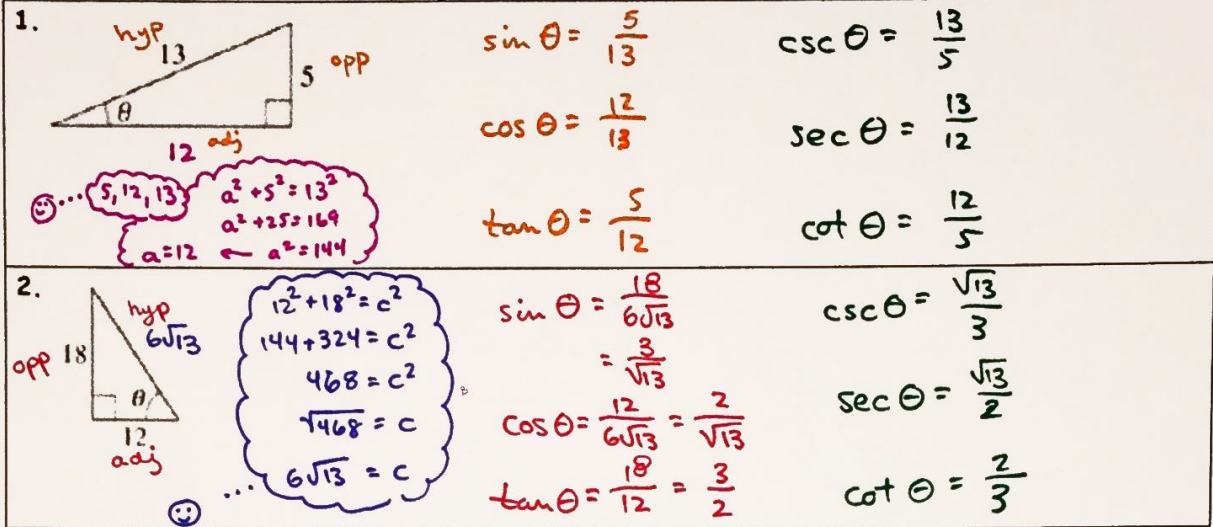 1.
hyp
13
5 opp
θ
adj
12
5, 12, 13
a² + 5² = 13²
a² + 25 = 169
a = 12 ← a² = 144
sin θ = 5/13
cos θ = 12/13
tan θ = 5/12
csc θ = 13/5
sec θ = 13/12
cot θ = 12/5
2.
hyp
6√13
opp 18
θ
12
adj
12² + 18² = c²
144 + 324 = c²
468 = c²
√468 = c
6√13 = c
sin θ = 18/6√13
= 3/√13
cos θ = 12/6√13 = 2/√13
tan θ = 18/12 = 3/2
csc θ = √13/3
sec θ = √13/2
cot θ = 2/3